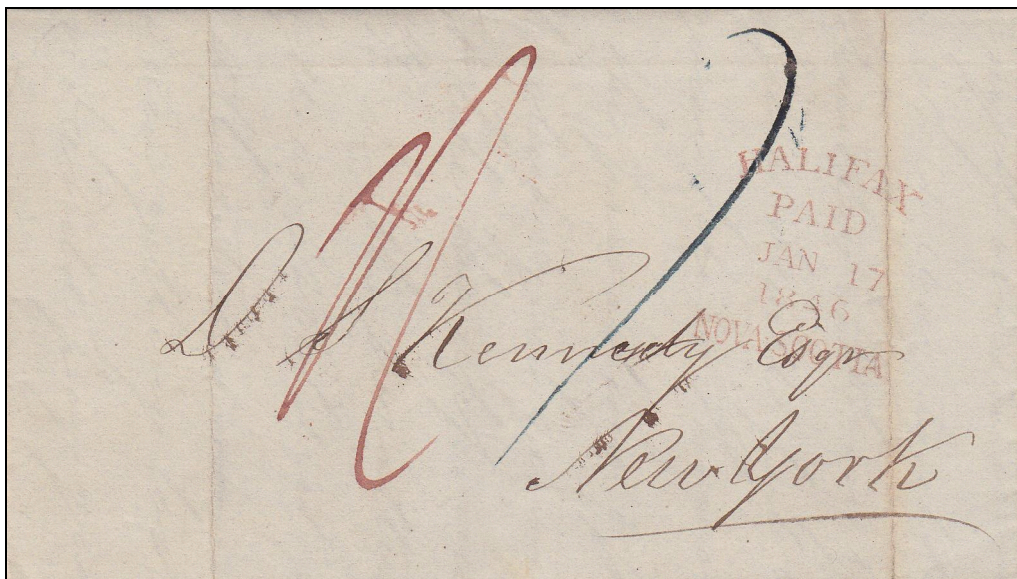 HALIFAX
PAID
JAN 17
1846
NOVA SCOTIA
D S Kennedy Esqr
New York